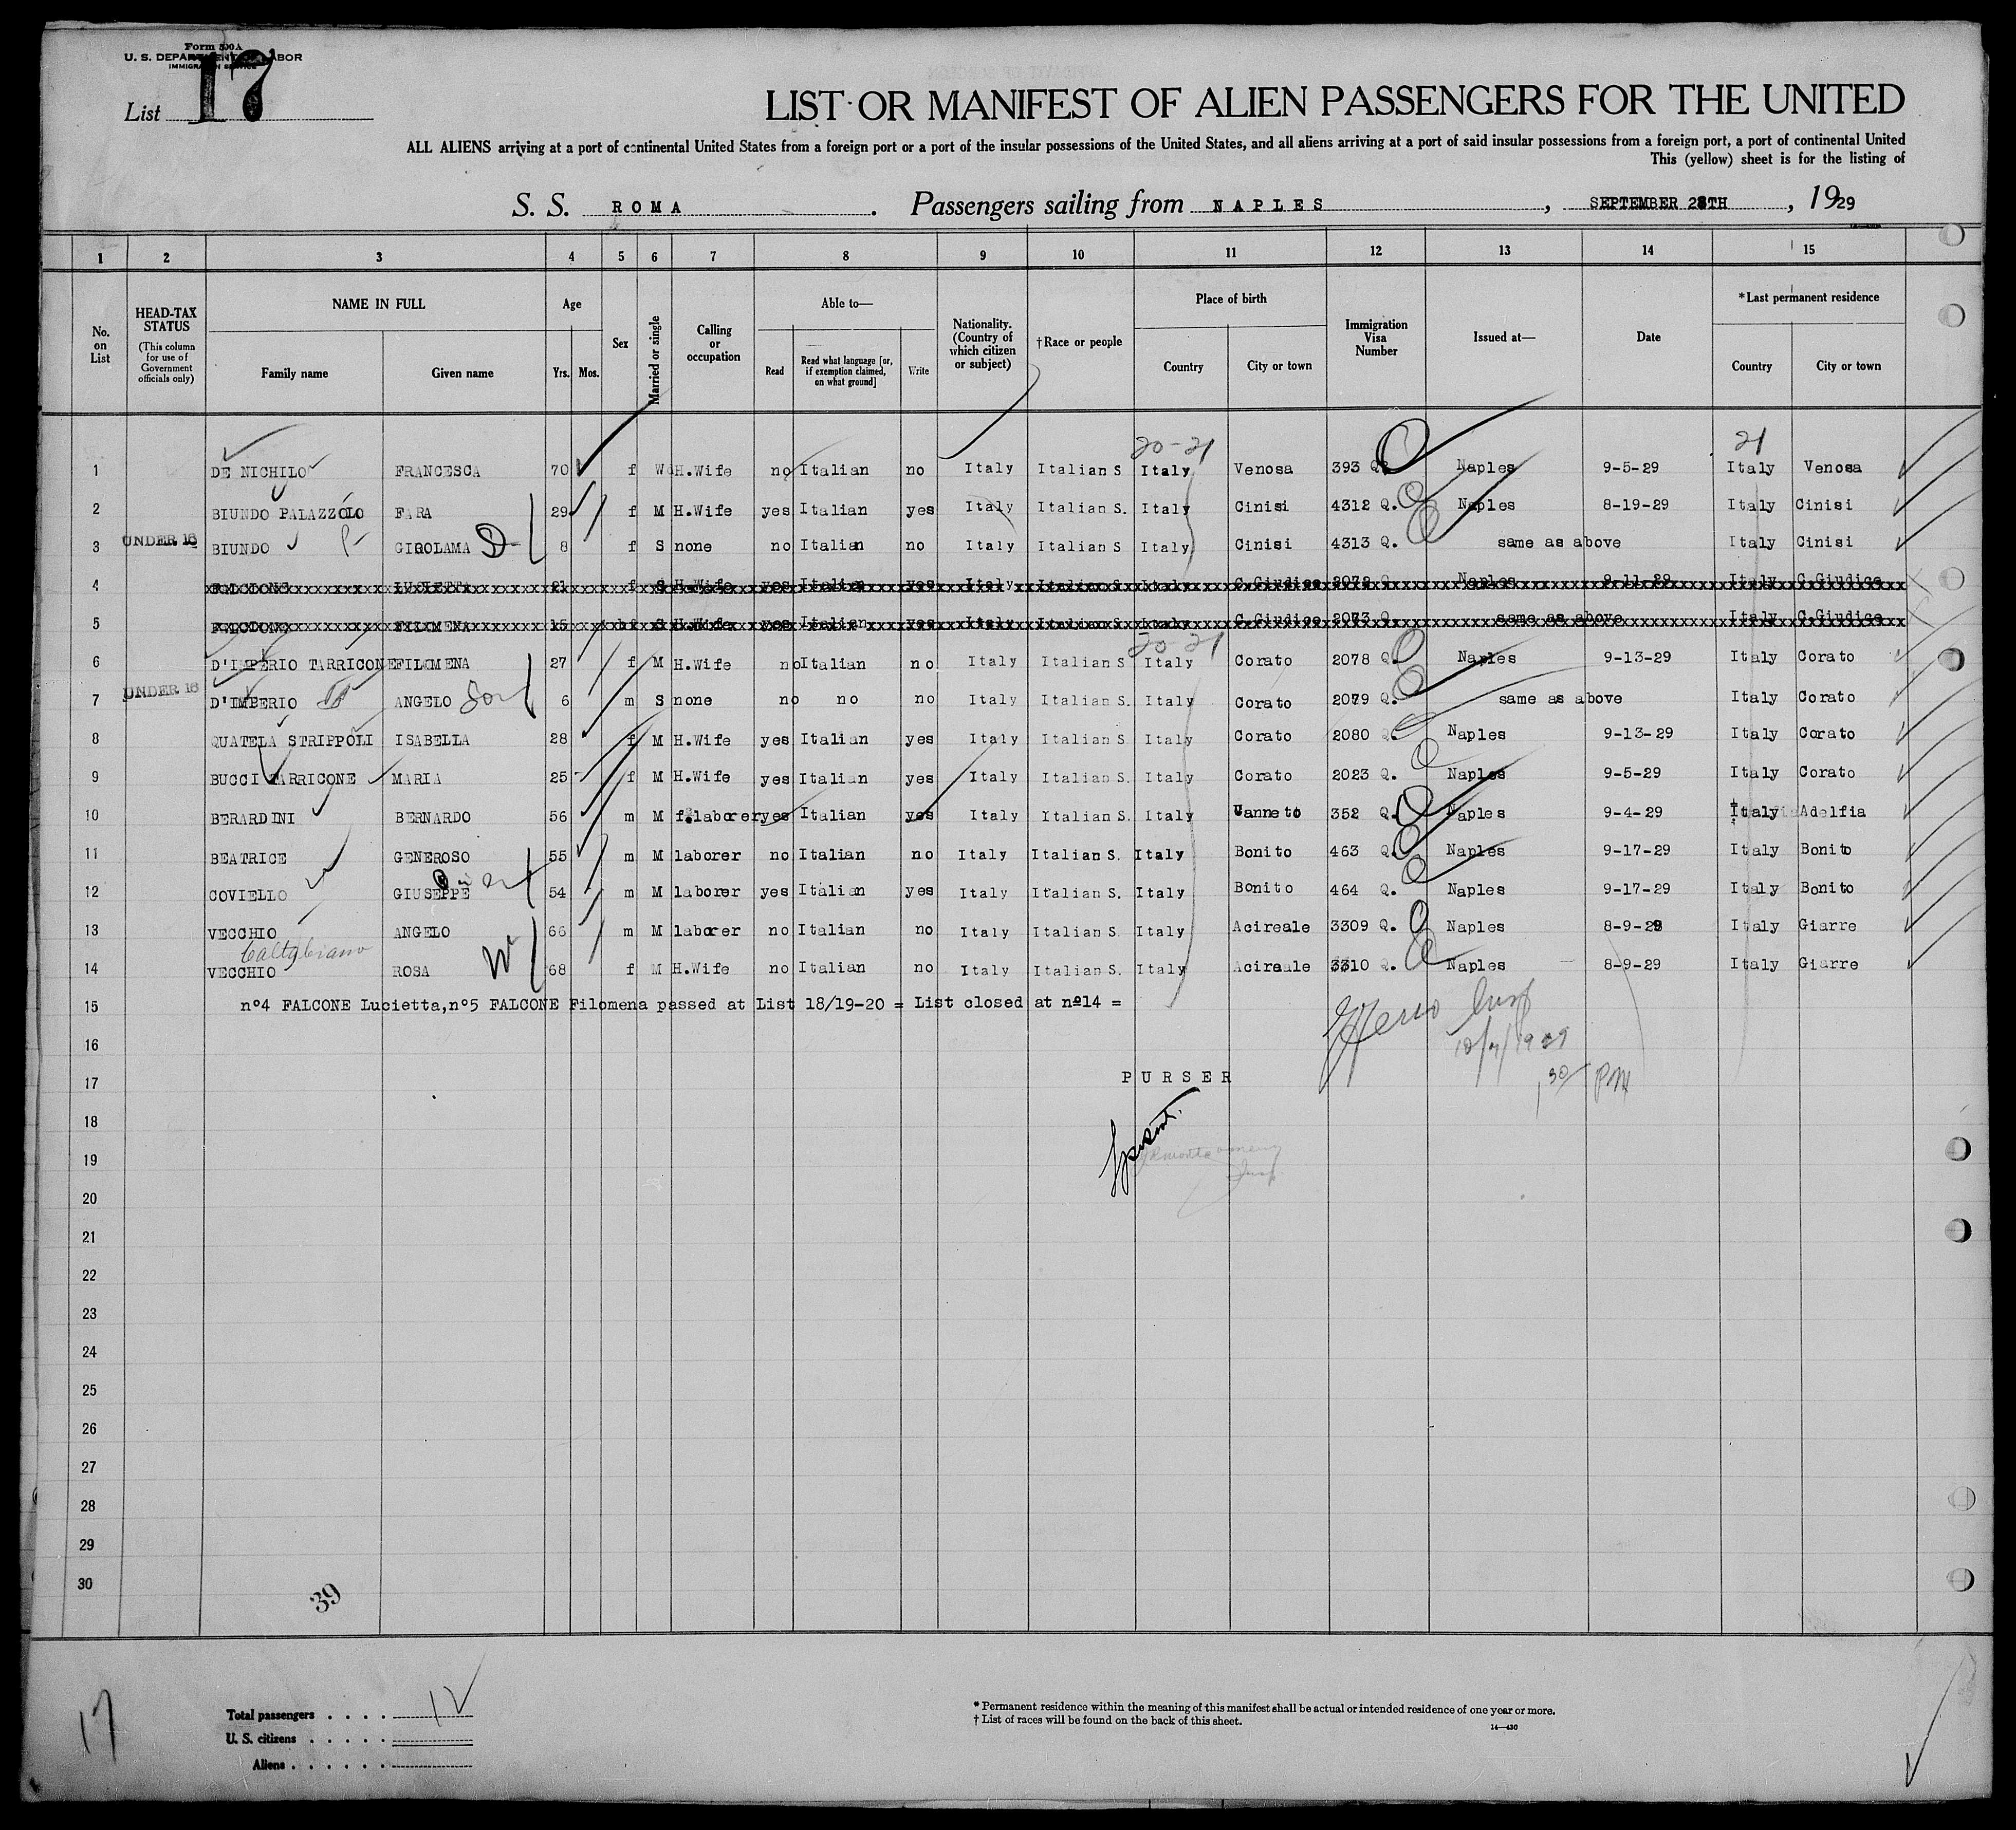 Form 500A
U. S. DEPARTMENT OF LABOR
IMMIGRATION SERVICE
List 17
LIST OR MANIFEST OF ALIEN PASSENGERS FOR THE UNITED
ALL ALIENS arriving at a port of continental United States from a foreign port or a port of the insular possessions of the United States, and all aliens arriving at a port of said insular possessions from a foreign port, a port of continental United
This (yellow) sheet is for the listing of
S. S. ROMA . Passengers sailing from NAPLES , SEPTEMBER 28TH , 1929
1 2 3 4 5 6 7 8 9 10 11 12 13 14 15
No. on List
HEAD-TAX STATUS (This column for use of Government officials only)
NAME IN FULL
Family name Given name
Age
Yrs. Mos.
Sex
Married or single
Calling or occupation
Able to—
Read Read what language [or, if exemption claimed, on what ground] Write
Nationality. (Country of which citizen or subject)
†Race or people
Place of birth
Country City or town
Immigration Visa Number
Issued at—
Date
*Last permanent residence
Country City or town
20-21 21
1 DE NICHILO FRANCESCA 70 f Wd H.Wife no Italian no Italy Italian S Italy Venosa 393 Q. Naples 9-5-29 Italy Venosa
2 BIUNDO PALAZZOLO FARA 29 f M H.Wife yes Italian yes Italy Italian S. Italy Cinisi 4312 Q. Naples 8-19-29 Italy Cinisi
3 UNDER 16 BIUNDO GIROLAMA D- 8 f S none no Italian no Italy Italian S Italy Cinisi 4313 Q. same as above Italy Cinisi
4 LUCIETTA 21 f S H.Wife yes Italian yes Italy Italian S. Italy C.Giudice 2072 Q. Naples 9-11-29 Italy C.Giudice
5 FILOMENA 15 f S H.Wife yes Italian yes Italy Italian S. Italy C.Giudice 2073 Q. same as above Italy C.Giudice
20-21
6 D'IMPERIO TARRICONE FILOMENA 27 f M H.Wife no Italian no Italy Italian S Italy Corato 2078 Q. Naples 9-13-29 Italy Corato
7 UNDER 16 D'IMPERIO ANGELO Son 6 m S none no no no Italy Italian S. Italy Corato 2079 Q. same as above Italy Corato
8 QUATELA STRIPPOLI ISABELLA 28 f M H.Wife yes Italian yes Italy Italian S Italy Corato 2080 Q. Naples 9-13-29 Italy Corato
9 BUCCI TARRICONE MARIA 25 f M H.Wife yes Italian yes Italy Italian S. Italy Corato 2023 Q. Naples 9-5-29 Italy Corato
10 BERARDINI BERNARDO 56 m M f.laborer yes Italian yes Italy Italian S. Italy Canneto 352 Q. Naples 9-4-29 Italy Adelfia
11 BEATRICE GENEROSO 55 m M laborer no Italian no Italy Italian S. Italy Bonito 463 Q. Naples 9-17-29 Italy Bonito
12 COVIELLO GIUSEPPE 54 m M laborer yes Italian yes Italy Italian S. Italy Bonito 464 Q. Naples 9-17-29 Italy Bonito
13 VECCHIO ANGELO 66 m M laborer no Italian no Italy Italian S. Italy Acireale 3309 Q. Naples 8-9-29 Italy Giarre
Caltabiano
14 VECCHIO ROSA W 68 f M H.Wife no Italian no Italy Italian S. Italy Acireale 3310 Q. Naples 8-9-29 Italy Giarre
15 nº4 FALCONE Lucietta,nº5 FALCONE Filomena passed at List 18/19-20 = List closed at nº14 =
Insp
16 10/7/1929
17 PURSER 1 30 PM
18
19
Insp.
20
21
22
23
24
25
26
27
28
29
30
39
17
Total passengers . . . . 12
U. S. citizens . . . . .
Aliens . . . . . .
* Permanent residence within the meaning of this manifest shall be actual or intended residence of one year or more.
† List of races will be found on the back of this sheet.
14—430